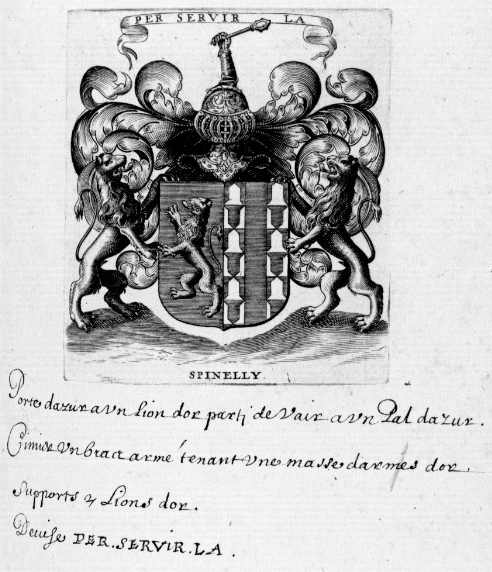 PER SERVIR LA
SPINELLY.
Porte dazur a vn Lion dor parti de Vair a vn Pal dazur.
Cimier Vn bract armé tenant vne masse darmes dor.
Supports 2 Lions dor.
Deuise PER.SERVIR.LA.